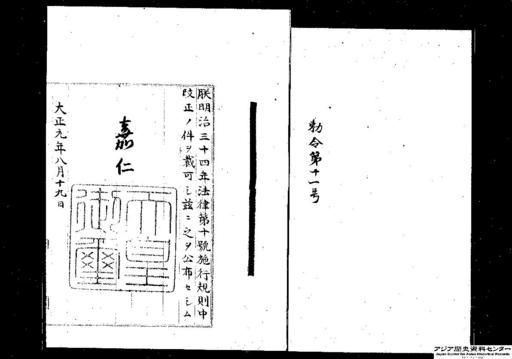 勅令第十一号
朕明治三十四年法律第十號施行規則中
改正ノ件ヲ裁可シ茲ニ之ヲ公布セシム
嘉仁
天皇御璽
大正元年八月十九日
アジア歴史資料センター
Japan Center for Asian Historical Records